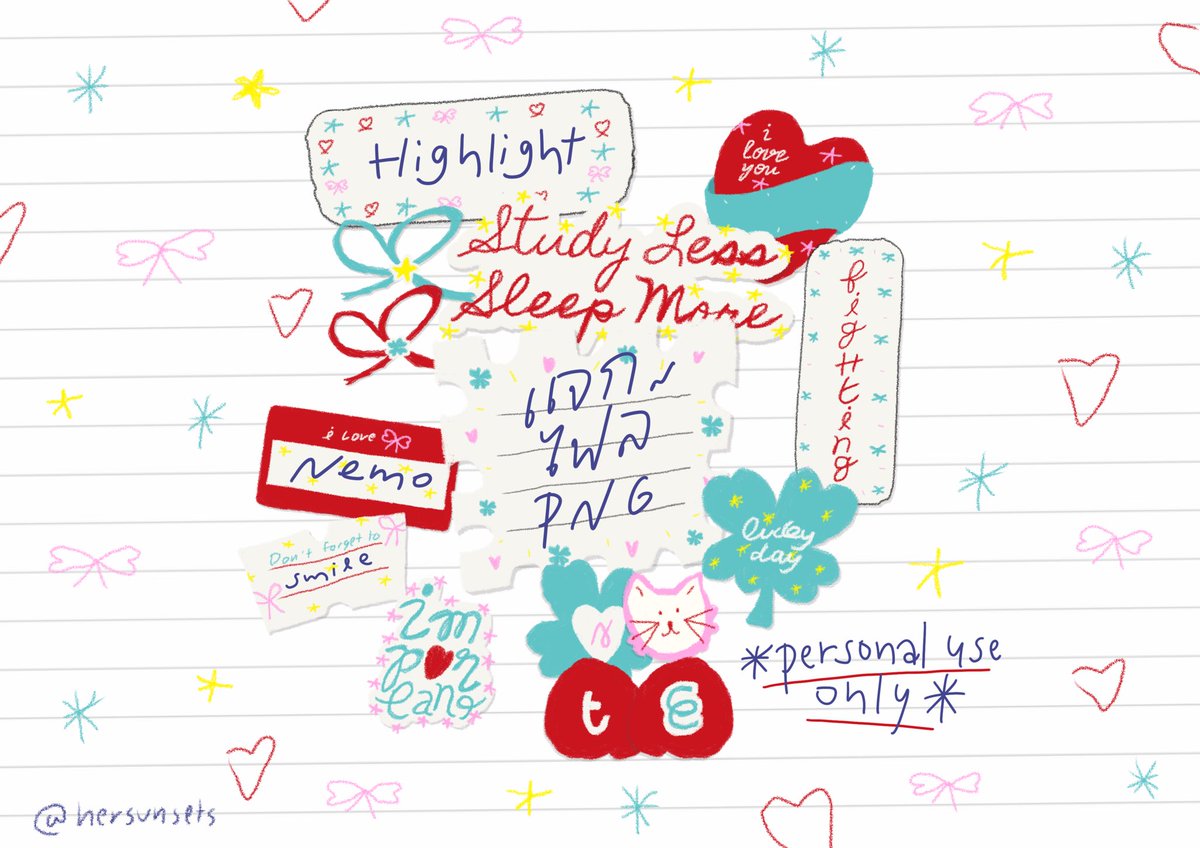 Highlight
i
love
you
Study Less
Sleep More
fighting
แจกก
ไฟล
PNG
i love
Nemo
Don't forget to
smile
lucky
day
i'm
por
lano
N
t
e
*personal use
only*
@hersunsets